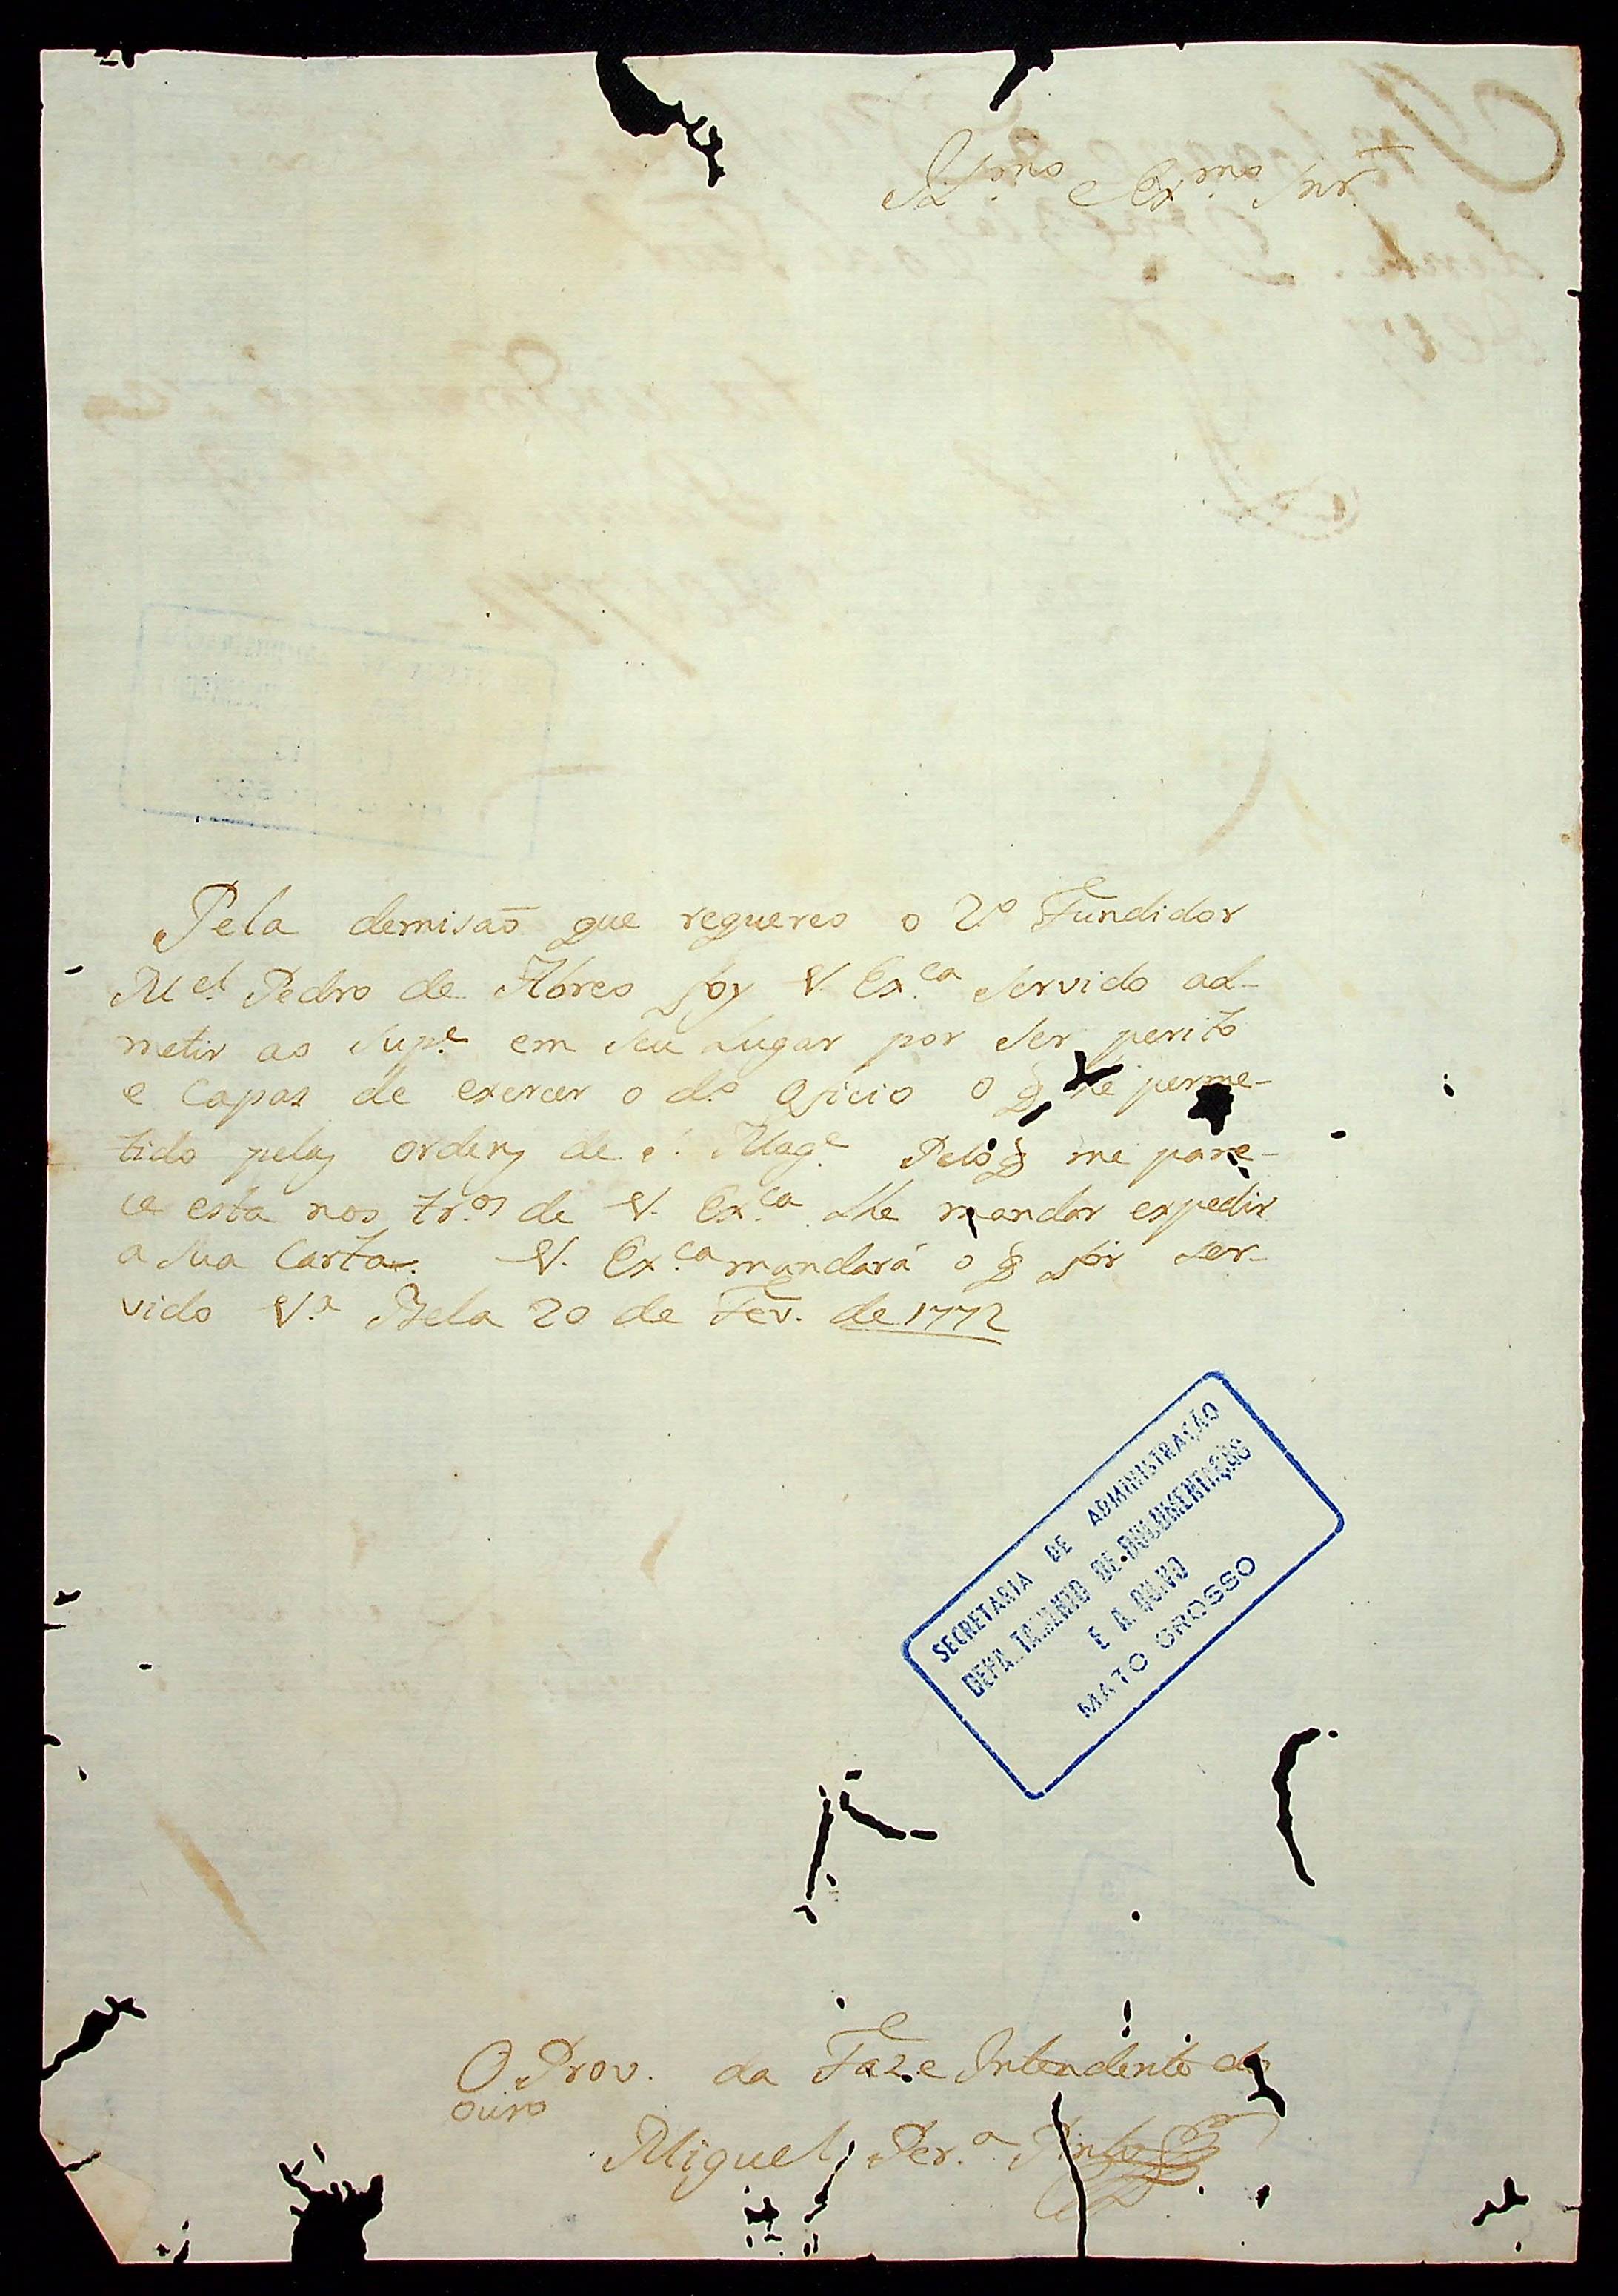 Il.mo e Ex.mo Snr.
Pela demisaõ que requereo o 2º Fundidor
M.el Pedro de Abreo foy V. Ex.ca servido ad-
metir ao Sup.e em seu Lugar por ser perito
e Capas de exercer o d.o oficio o q̃ he perme-
tido pelas ordens de S. Mag.e Pelo q̃ me pare-
ce esta nos tr.os de V. Ex.ca lhe mandar expedir
a sua Carta. V. Ex.ca mandará o q̃ for ser-
vido V.a Bela 20 de Fev. de 1772
SECRETARIA DE ADMINISTRAÇÃO
DEPARTAMENTO DE DOCUMENTAÇÃO
E ARQUIVO
MATO GROSSO
O Prov. da Faz. e Intendente do
ouro
Miguel Per.a Pinto